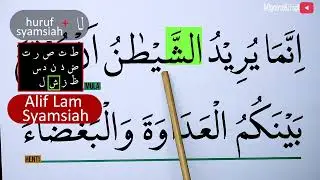 huruf syamsiah + ل
ط ث ص ر ت
ض ذ ن د س
ظ ز ش ل
Alif Lam
Syamsiah
اِنَّمَا يُرِيْدُ الشَّيْطٰنُ اَنْ
MULA
بَيْنَكُمُ الْعَدَاوَةَ وَالْبَغْضَاۤءَ
HENTI